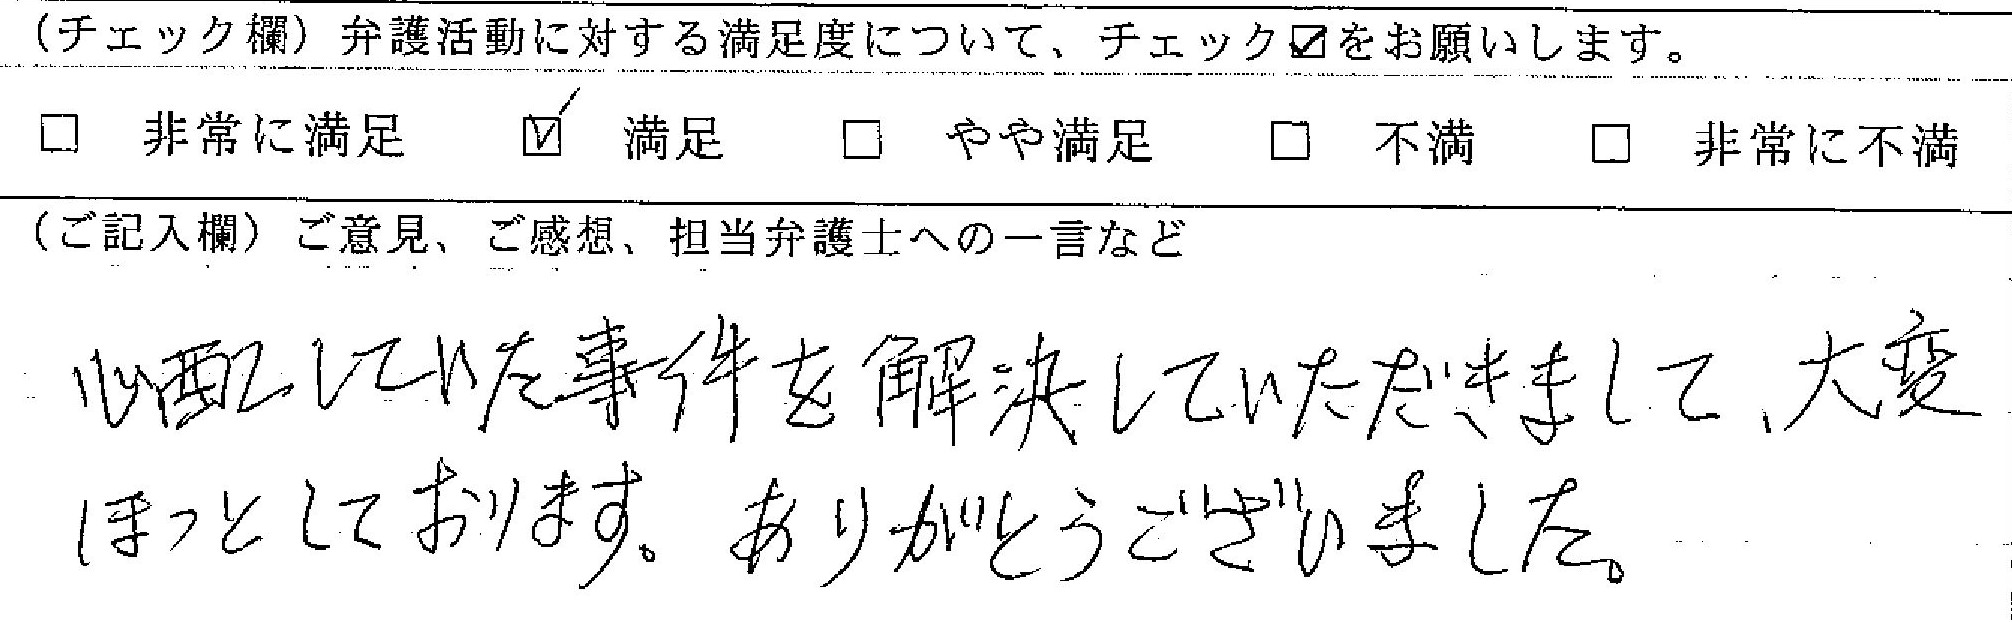 （チェック欄）弁護活動に対する満足度について、チェック☑をお願いします。
□ 非常に満足 ☑ 満足 □ やや満足 □ 不満 □ 非常に不満
（ご記入欄）ご意見、ご感想、担当弁護士への一言など
心配していた事件を解決していただきまして、大変
ほっとしております。ありがとうございました。